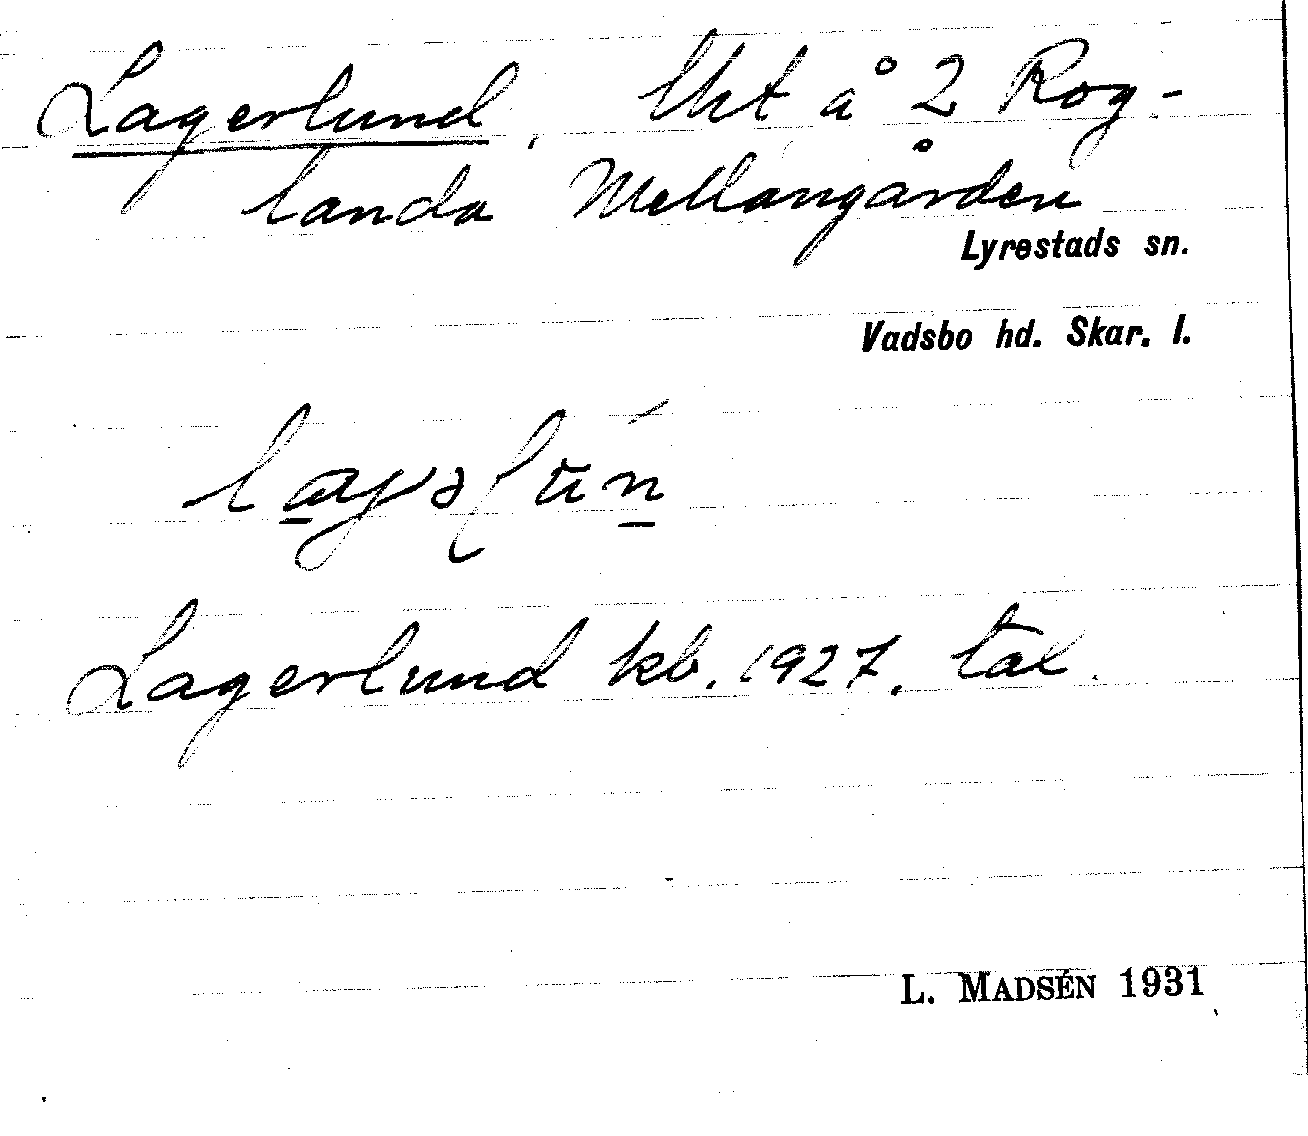 Lagerlund, lht å 2 Rog-
landa Mellangården
Lyrestads sn.
Vadsbo hd. Skar. l.
Lagerlund kb. 1927, tal.
L. MADSÉN 1931